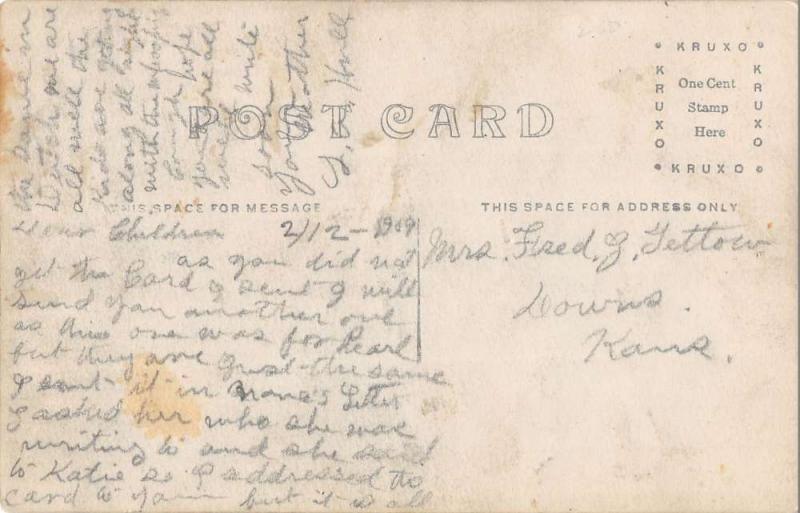 POST CARD
KRUXO
KRUXO
KRUXO
KRUXO
One Cent
Stamp
Here
THIS SPACE FOR MESSAGE
THIS SPACE FOR ADDRESS ONLY
Dear Children 2/12-1909
as you did not
get the Card I sent I will
send you another one
as this one was for Pearl
but they are just the same
I sent it in Letter
I asked her who she was
writing to and she said
to Katie so I addressed to
Card to but it is all
the same in
Dutch we are
all well the
Kids are getting
along all right
with the whooping
Cough hope
you are all
well write
soon
your Mother
Hull
Mrs. Fred. J. Tettow
Downs.
Kans.